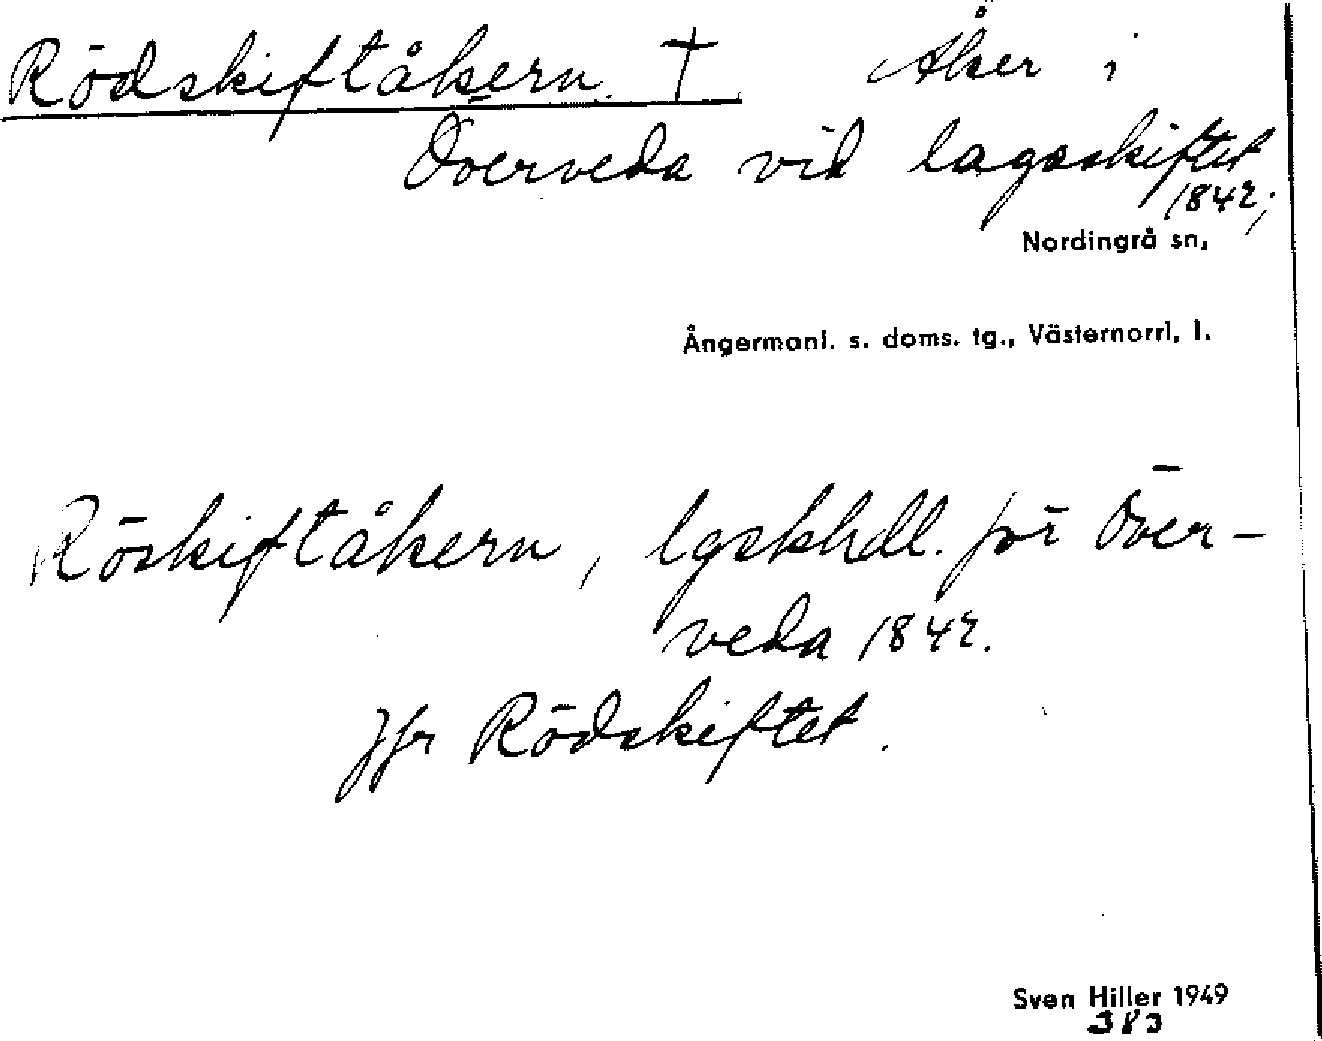 Rödskiftåkern. † Åker i
Överveda vid lagaskiftet
1842;
Nordingrå sn,
Ångermanl. s. doms. tg., Västernorrl, l.
Röskiftåkern, lgskhdl. för Över-
veda 1842.
Jfr Rödskiftet.
Sven Hiller 1949
383